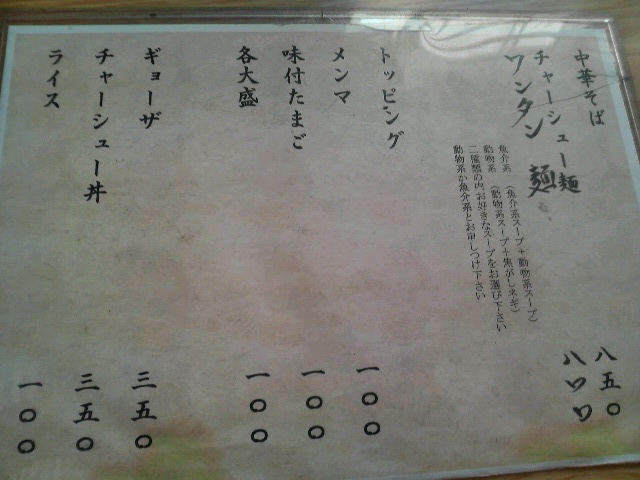 中華そば
チャーシュー麺 八五〇
ワンタン麺 八〇〇
魚介系 （魚介系スープ＋動物系スープ）
動物系 （動物系スープ＋焦がしネギ）
二種類の内お好きなスープをお選び下さい
動物系か魚介系とお申しつけ下さい
トッピング
メンマ 一〇〇
味付たまご 一〇〇
各大盛 一〇〇
ギョーザ 三五〇
チャーシュー丼 三五〇
ライス 一〇〇